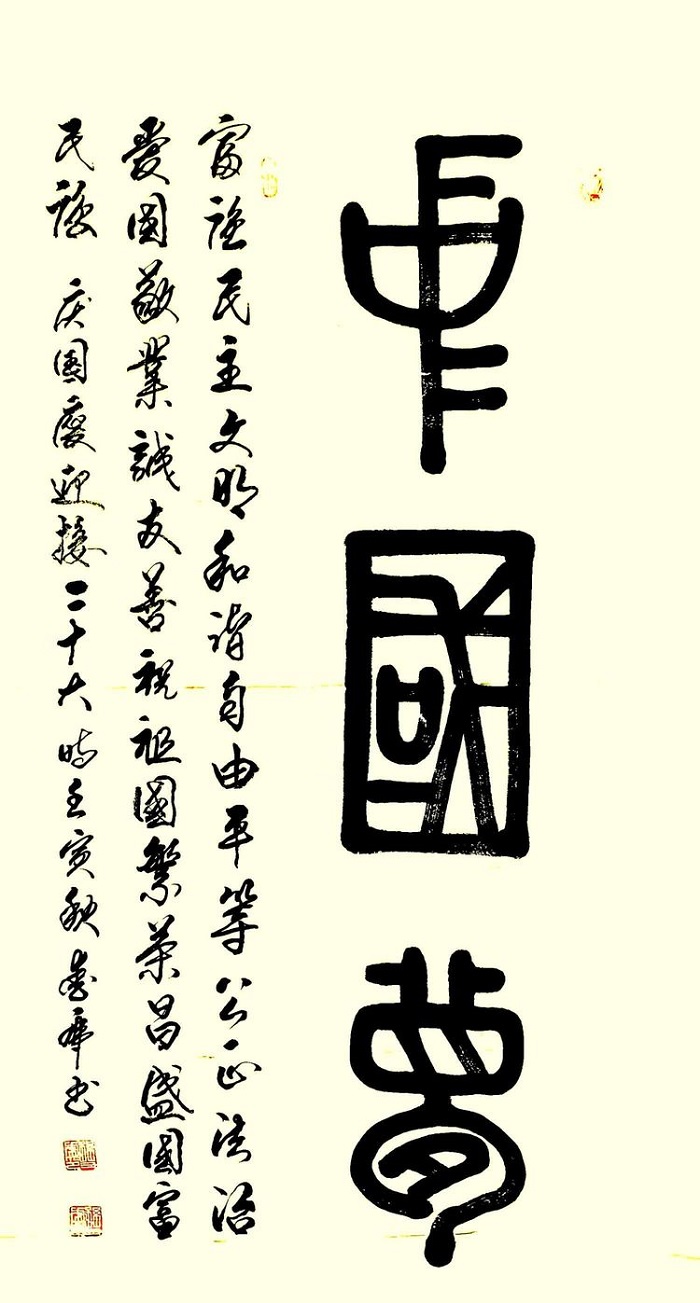 中國夢
富強民主文明和谐自由平等公正法治
愛國敬業誠友善祝祖國繁荣昌盛國富
民強 庆國慶迎接二十大时壬寅秋书